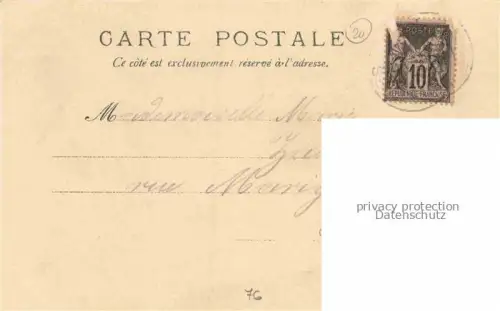 20
POSTES
10
REPUBLIQUE FRANÇAISE
CARTE POSTALE
Ce côté est exclusivement réservé à l'adresse.
Mademoiselle Marie
rue
privacy protection
Datenschutz
76